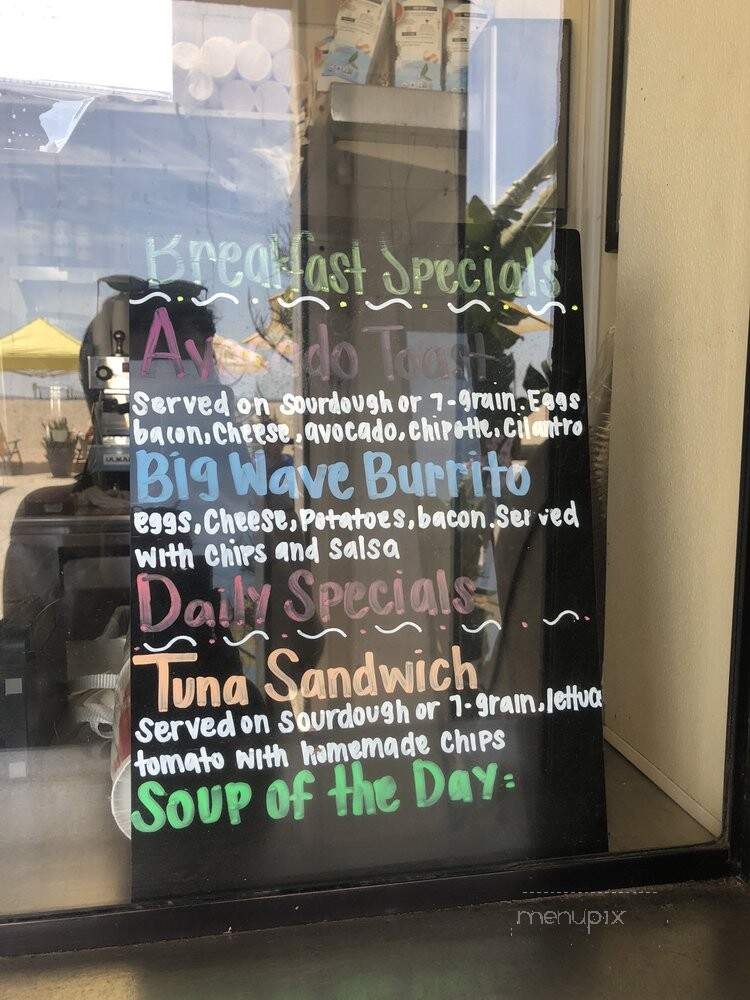 Breakfast Specials
Avocado Toast
Served on Sourdough or 7-grain. Eggs
bacon, Cheese, avocado, Chipotle, Cilantro
Big Wave Burrito
eggs, Cheese, Potatoes, bacon. Served
with Chips and Salsa
Daily Specials
Tuna Sandwich
Served on Sourdough or 7-grain, lettuce
tomato with homemade Chips
Soup of the Day:
menupix